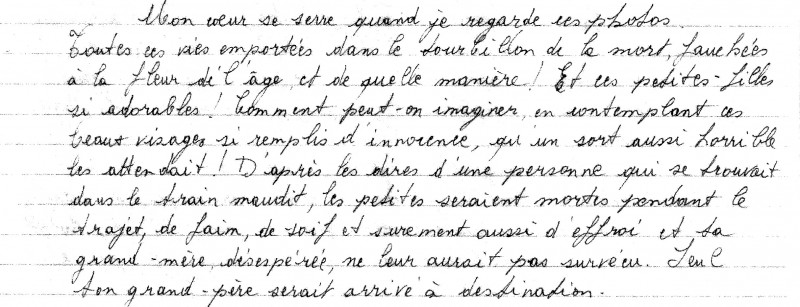 Mon cœur se serre quand je regarde ces photos.
Toutes ces vies emportées dans le tourbillon de la mort, fauchées
à la fleur de l'âge, et de quelle manière ! Et ces petites-filles
si adorables ! Comment peut-on imaginer, en contemplant ces
beaux visages si remplis d'innocence, qu'un sort aussi horrible
les attendait ! D'après les dires d'une personne qui se trouvait
dans le train maudit, les petites seraient mortes pendant le
trajet, de faim, de soif et surement aussi d'effroi et ta
grand-mère, désespérée, ne leur aurait pas survécu. Seul
ton grand-père serait arrivé à destination.